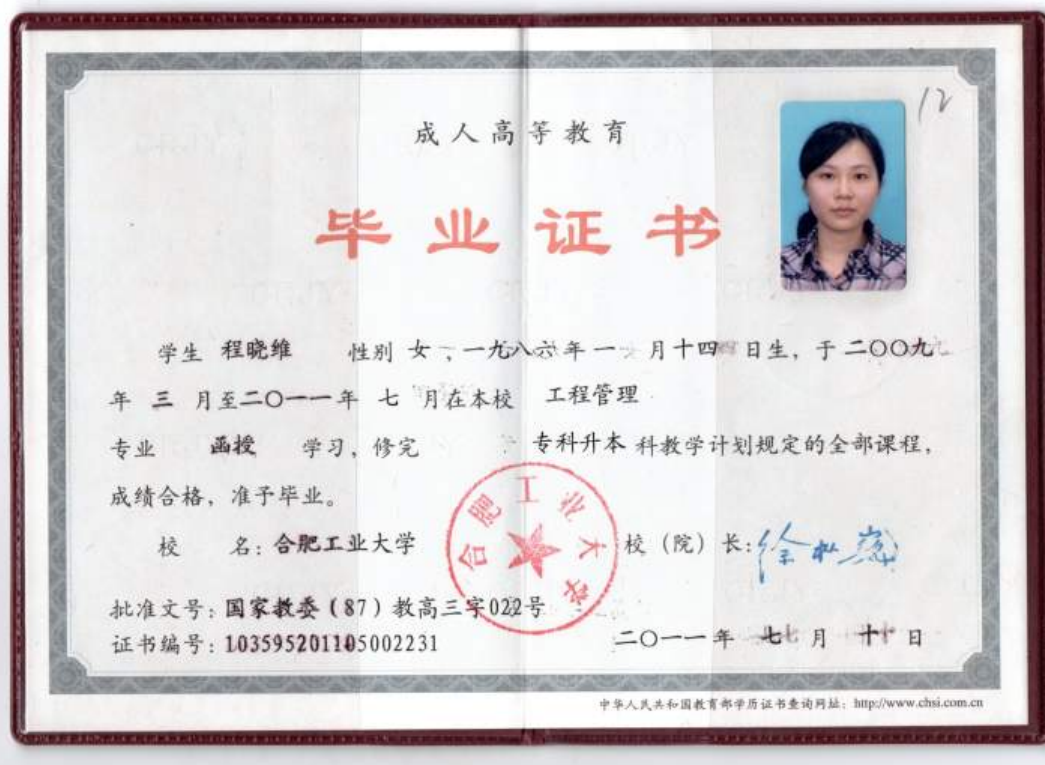 12
成人高等教育
毕业证书
学生 程晓维 性别 女，一九八六年一月十四日生，于二〇〇九
年 三 月至二〇一一年 七 月在本校 工程管理
专业 函授 学习，修完 专科升本 科教学计划规定的全部课程，
成绩合格，准予毕业。
校 名：合肥工业大学 校（院）长：
合肥工业大学
批准文号：国家教委（87）教高三字022号
证书编号：103595201105002231 二〇一一年 七 月 十 日
中华人民共和国教育部学历证书查询网址：http://www.chsi.com.cn